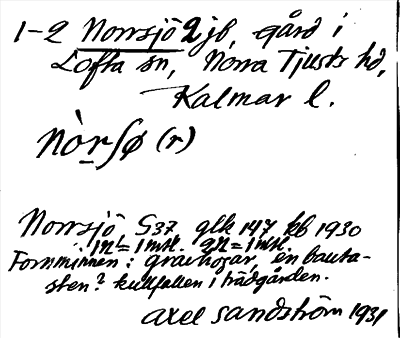 1-2 Norrsjö 2 jb, gård i
Lofta sn, Norra Tjusts hd,
Kalmar l.
nòrʃø (r)
Norrsjö S37 glk 147 kb 1930
1n1 = 1 mtl. 2n1 = 1 mtl.
Fornminnen: gravhögar, en bauta-
sten? kullfallen i trädgården.
Axel Sandström 1931